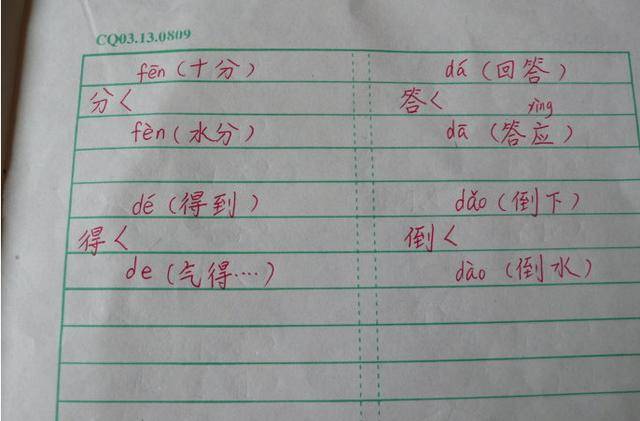 CQ03.13.0809
fēn (十分) dá (回答)
分< 答< yìng
fèn (水分) dā (答应)
dé (得到) dǎo (倒下)
得< 倒<
de (气得····) dào (倒水)